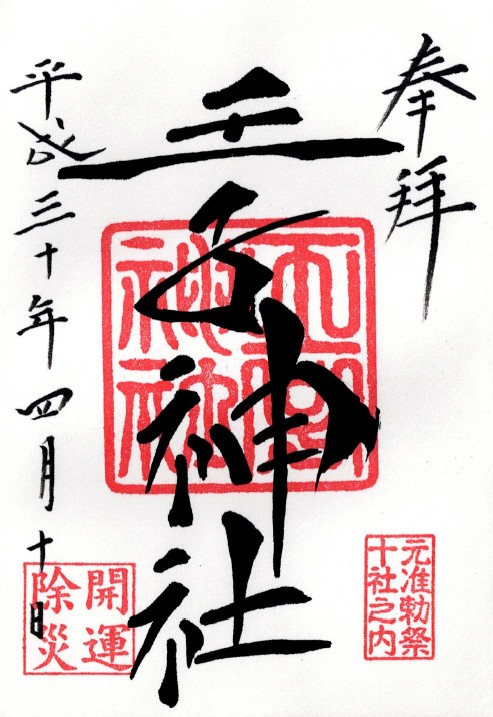 奉拝
元准勅祭
十社之内
王子神社
開運
除災
平成三十年四月十日